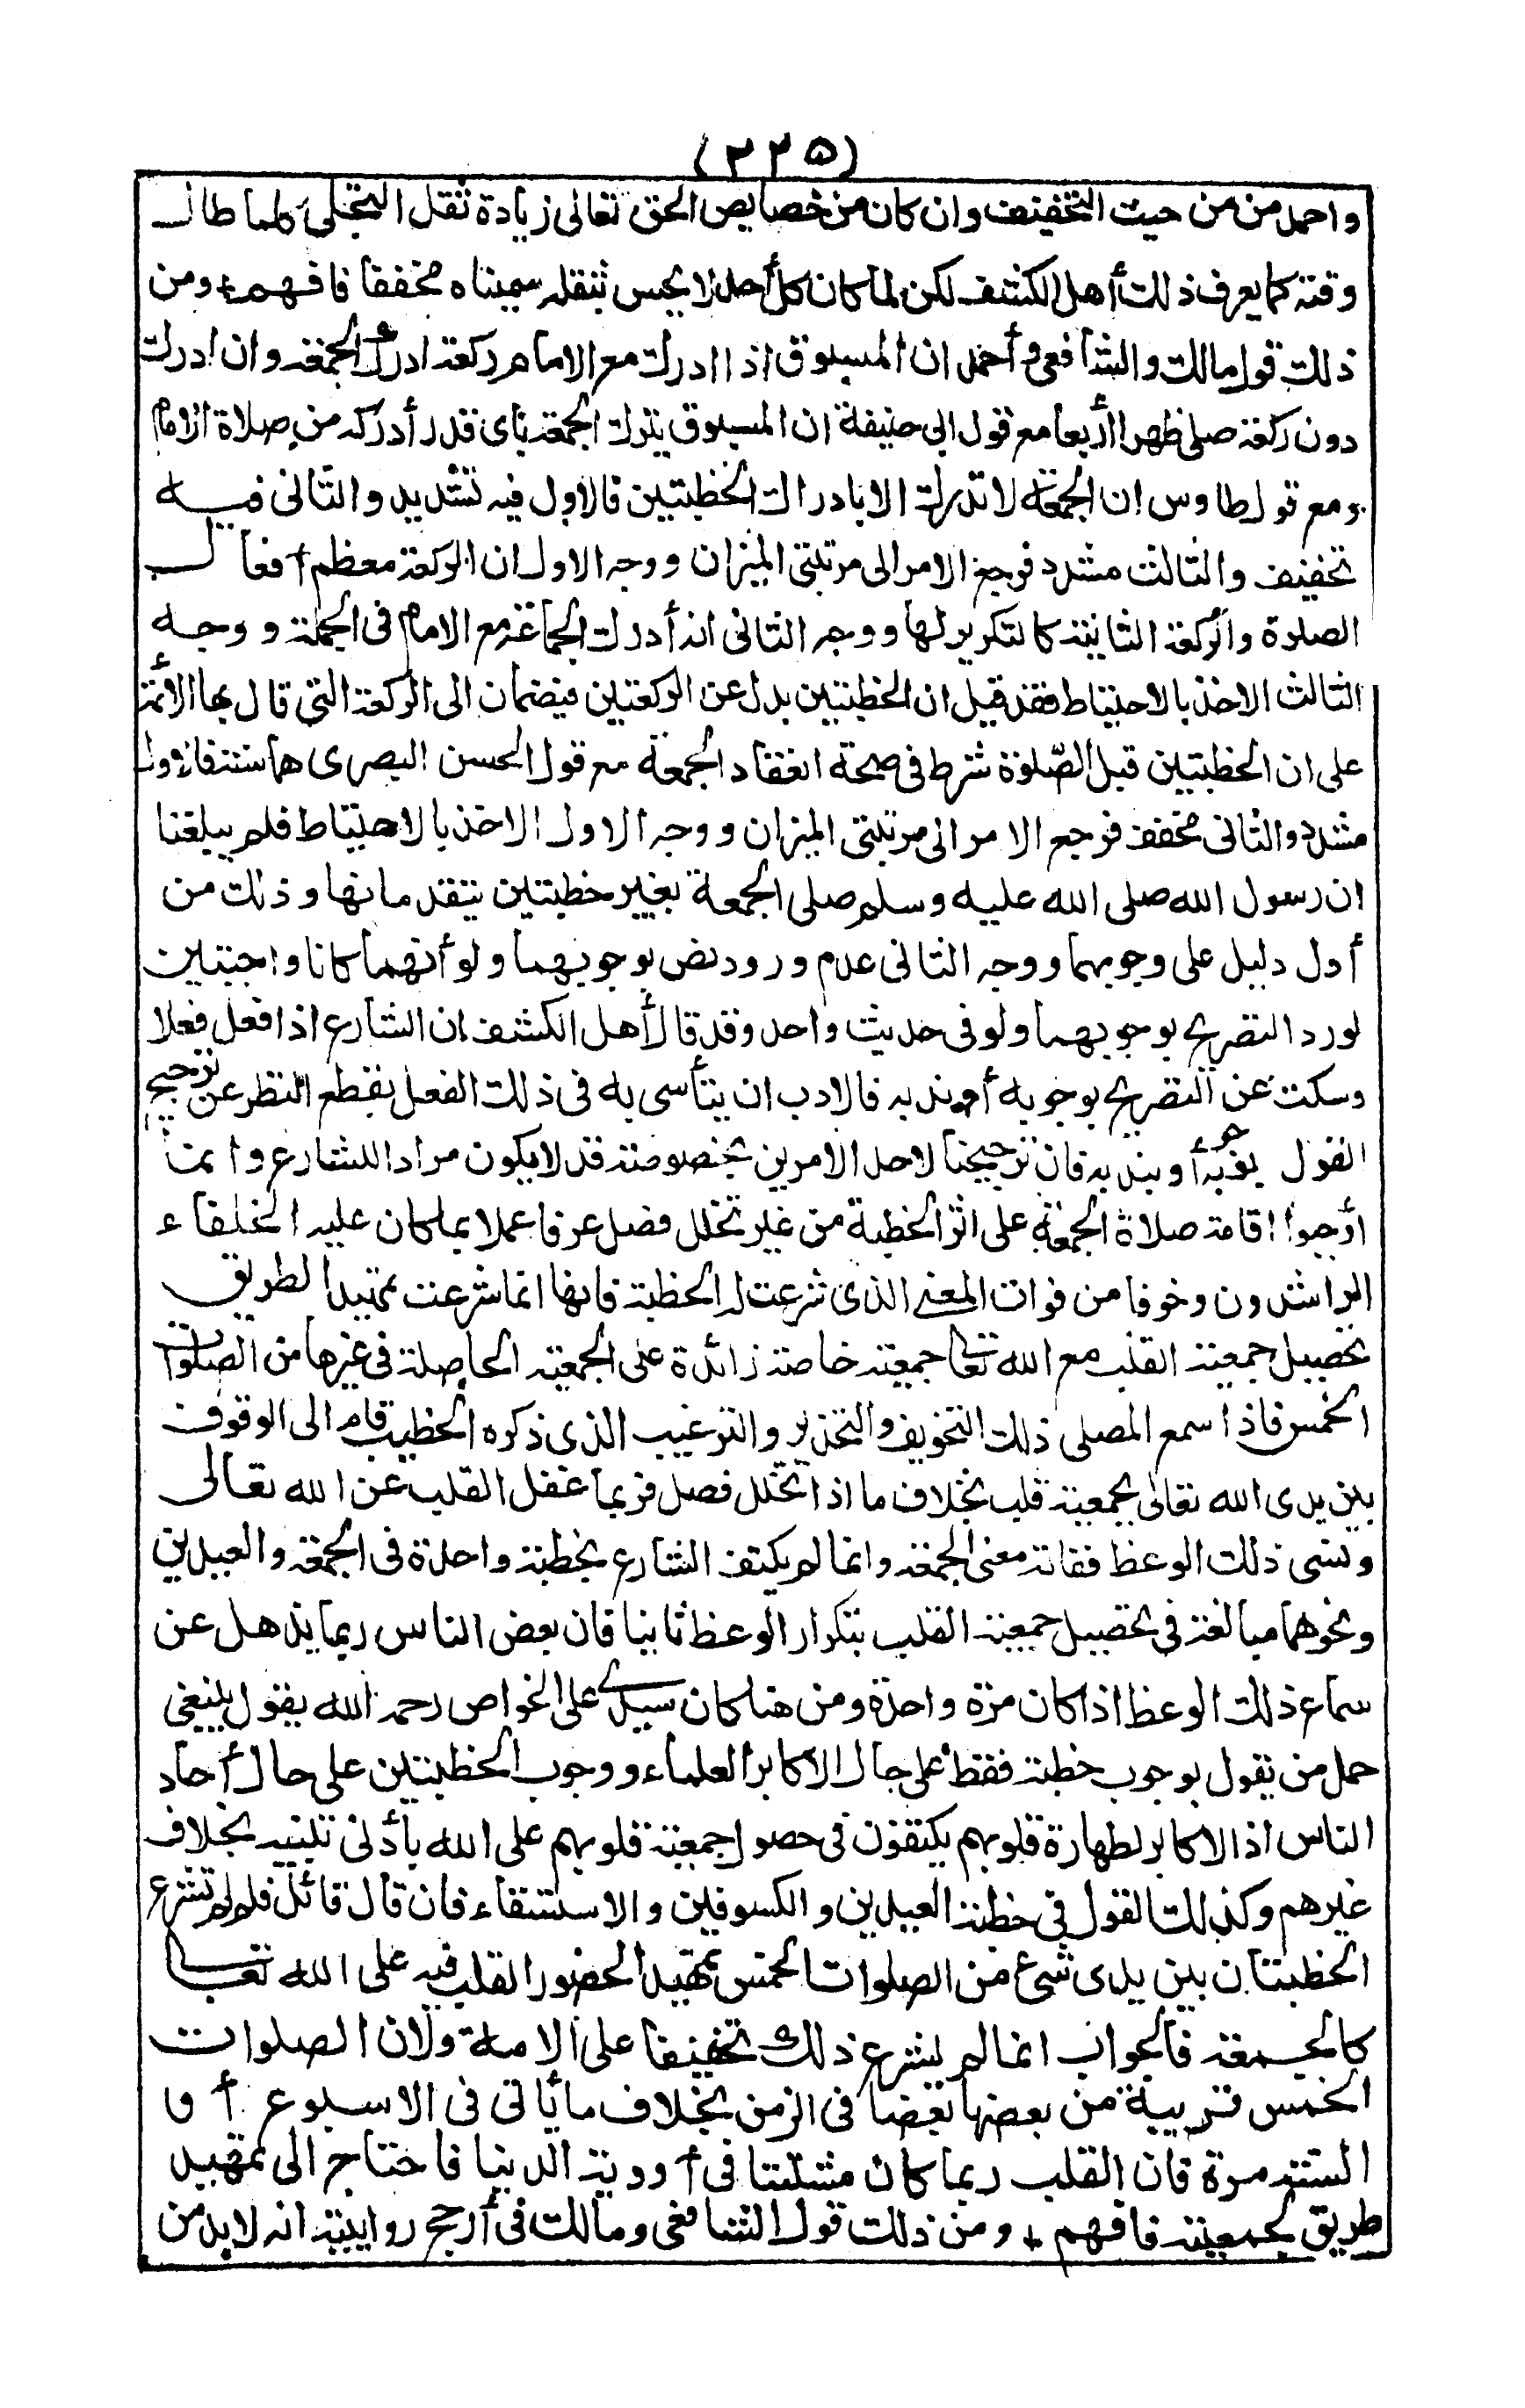 (٢٢٥)
واحمد من من حيث التخفيف وان كان من خصايص الحق تعالى زيادة ثقل التجلى كلما طال
وقته كما يعرف ذلك أهل الكشف لكن لما كان كل أحد لا يحس بثقله سميناه مخففا فافهم + ومن
ذلك قول مالك والشافعى وأحمد ان المسبوق اذا ادرك مع الامام ركعة ادرك الجمعة وان ادرك
دون ركعة صلى ظهرا أربعا مع قول ابى حنيفة ان المسبوق يدرك الجمعة باى قدر أدركه من صلاة الامام
ومع قول طاوس ان الجمعة لا تدرك الا بادراك الخطبتين فالاول فيه تشديد والثانى فيه
تخفيف والثالث مشدد فرجع الامر الى مرتبتى الميزان ووجه الاول ان الركعة معظم أفعال
الصلوة والركعة الثانية كالتكرير لها ووجه الثانى انه أدرك الجماعة مع الامام فى الجملة ووجه
الثالث الاخذ بالاحتياط فقد قيل ان الخطبتين بدل عن الركعتين فيضمان الى الركعة التى قال بها الائمة
على ان الخطبتين قبل الصلوة شرط فى صحة انعقاد الجمعة مع قول الحسن البصرى هما سنتان فالاول
مشدد والثانى مخفف فرجع الامر الى مرتبتى الميزان ووجه الاول الاخذ بالاحتياط فلم يبلغنا
ان رسول الله صلى الله عليه وسلم صلى الجمعة بغير خطبتين يتقدمانها وذلك من
أدل دليل على وجوبهما ووجه الثانى عدم ورود نص بوجوبهما ولو أنهما كانا واجبتين
لورد التصريح بوجوبهما ولو فى حديث واحد وقد قال أهل الكشف ان الشارع اذا فعل فعلا
وسكت عن التصريح بوجوبه أو ندبه فالادب ان يتأسى به فى ذلك الفعل بقطع النظر عن ترجيح
القول بوجوبه أو بندبه فان ترجيحنا لاحد الامرين بخصوصه قد لا يكون مرادا للشارع وانما
أوجبوا اقامة صلاة الجمعة على اثر الخطبة من غير تخلل فصل عرفا عملا بما كان عليه الخلفاء
الراشدون وخوفا من فوات المعنى الذى شرعت له الخطبة فانها انما شرعت تمهيدا لطريق
تحصيل جمعية القلب مع الله تعالى جمعية خاصة زائدة على الجمعية الحاصلة فى غيرها من الصلوات
الخمس فاذا سمع المصلى ذلك التخويف والتحذير والترغيب الذى ذكره الخطيب قام الى الوقوف
بين يدى الله تعالى بجمعية قلب بخلاف ما اذا تخلل فصل فربما غفل القلب عن الله تعالى
ونسى ذلك الوعظ ففاته معنى الجمعة وانما لم يكتف الشارع بخطبة واحدة فى الجمعة والعيدين
ونحوهما مبالغة فى تحصيل جمعية القلب بتكرار الوعظ ثانيا فان بعض الناس ربما يذهل عن
سماع ذلك الوعظ اذا كان مرة واحدة ومن هنا كان سيدى على الخواص رحمه الله يقول ينبغى
حمل من يقول بوجوب خطبة فقط على حال الاكابر العلماء ووجوب الخطبتين على حال أحاد
الناس اذ الاكابر لطهارة قلوبهم يكتفون فى حصول جمعية قلوبهم على الله بأدنى تنبيه بخلاف
غيرهم وكذلك القول فى خطبة العيدين والكسوفين والاستسقاء فان قال قائل فلم لم تشرع
الخطبتان بين يدى شئ من الصلوات الخمس تمهيدا لحضور القلب فيه على الله تعالى
كالجمعة فالجواب انما لم يشرع ذلك تخفيفا على الامة ولان الصلوات
الخمس قريبة من بعضها بعضا فى الزمن بخلاف ما يأتى فى الاسبوع أو
السنة مرة فان القلب ربما كان مشتتا فى أودية الدنيا فاحتاج الى تمهيد
طريق لجمعيته فافهم + ومن ذلك قول الشافعى ومالك فى أرجح روايتيه انه لا بد من